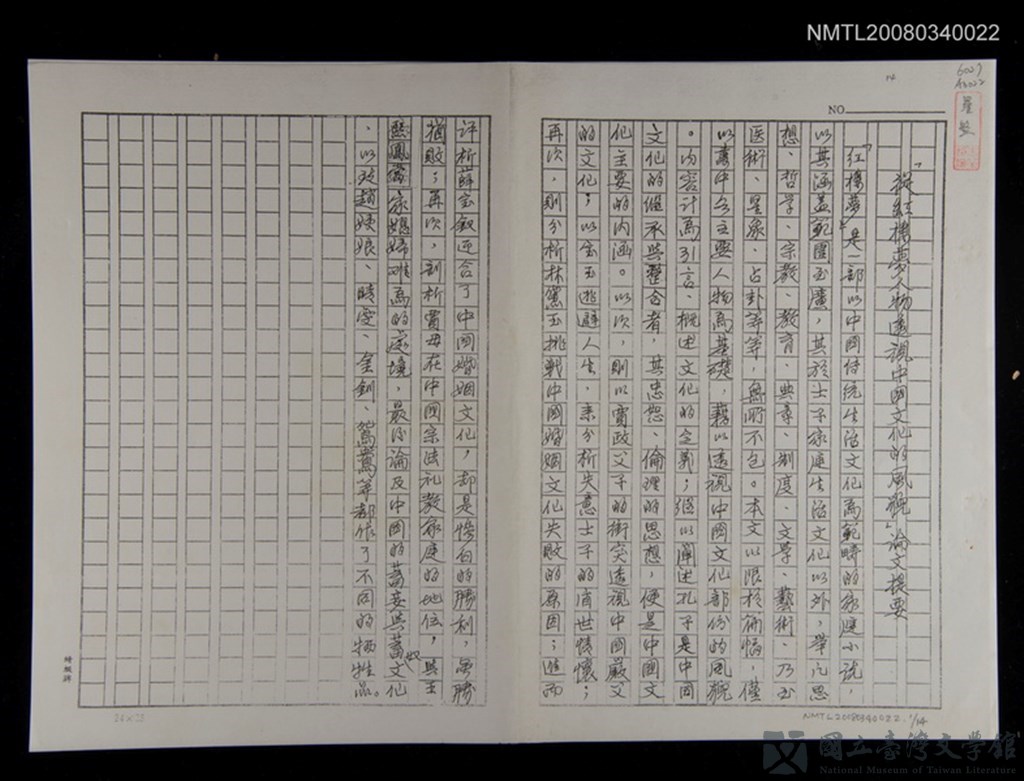 NMTL20080340022
6027
A0022
14
NO
羅盤
「從紅樓夢人物透視中國文化的風貌」論文提要
「紅樓夢」是一部以中國傳統生活文化為範疇的家庭小說，
以其涵蓋範圍至廣，其於士子家庭生活文化以外，舉凡思
想、哲學、宗教、教育、典章、制度、文學、藝術、乃至
医術、星象、占卦等等，無所不包。本文以限於篇幅，僅
以書中各主要人物為基礎，藉以透視中國文化部份的風貌
。內容計為引言、概述文化的定義；繼以闡述孔子是中國
文化的繼承與整合者，其忠恕、倫理的思想，便是中國文
化主要的內涵。以次，則以賈政父子的衝突透視中國嚴父
的文化；以宝玉逃避人生，來分析失意士子的消世情懷；
再次，則分析林黛玉挑戰中国婚姻文化失敗的原因；進而
評析薛宝釵迎合了中国婚姻文化，却是慘白的勝利，雖勝
猶敗；再次，剖析賈母在中國宗法礼教家庭的地位，與王
熙鳳當家媳婦难為的處境，最后論及中国的蓄妾與蓄奴文化
、以致趙姨娘、晴雯、金釧、鴛鴦等都作了不同的犧牲品。
綺楓牌
24×25
NMTL20080340022, 1/14
國立臺灣文學館
National Museum of Taiwan Literature